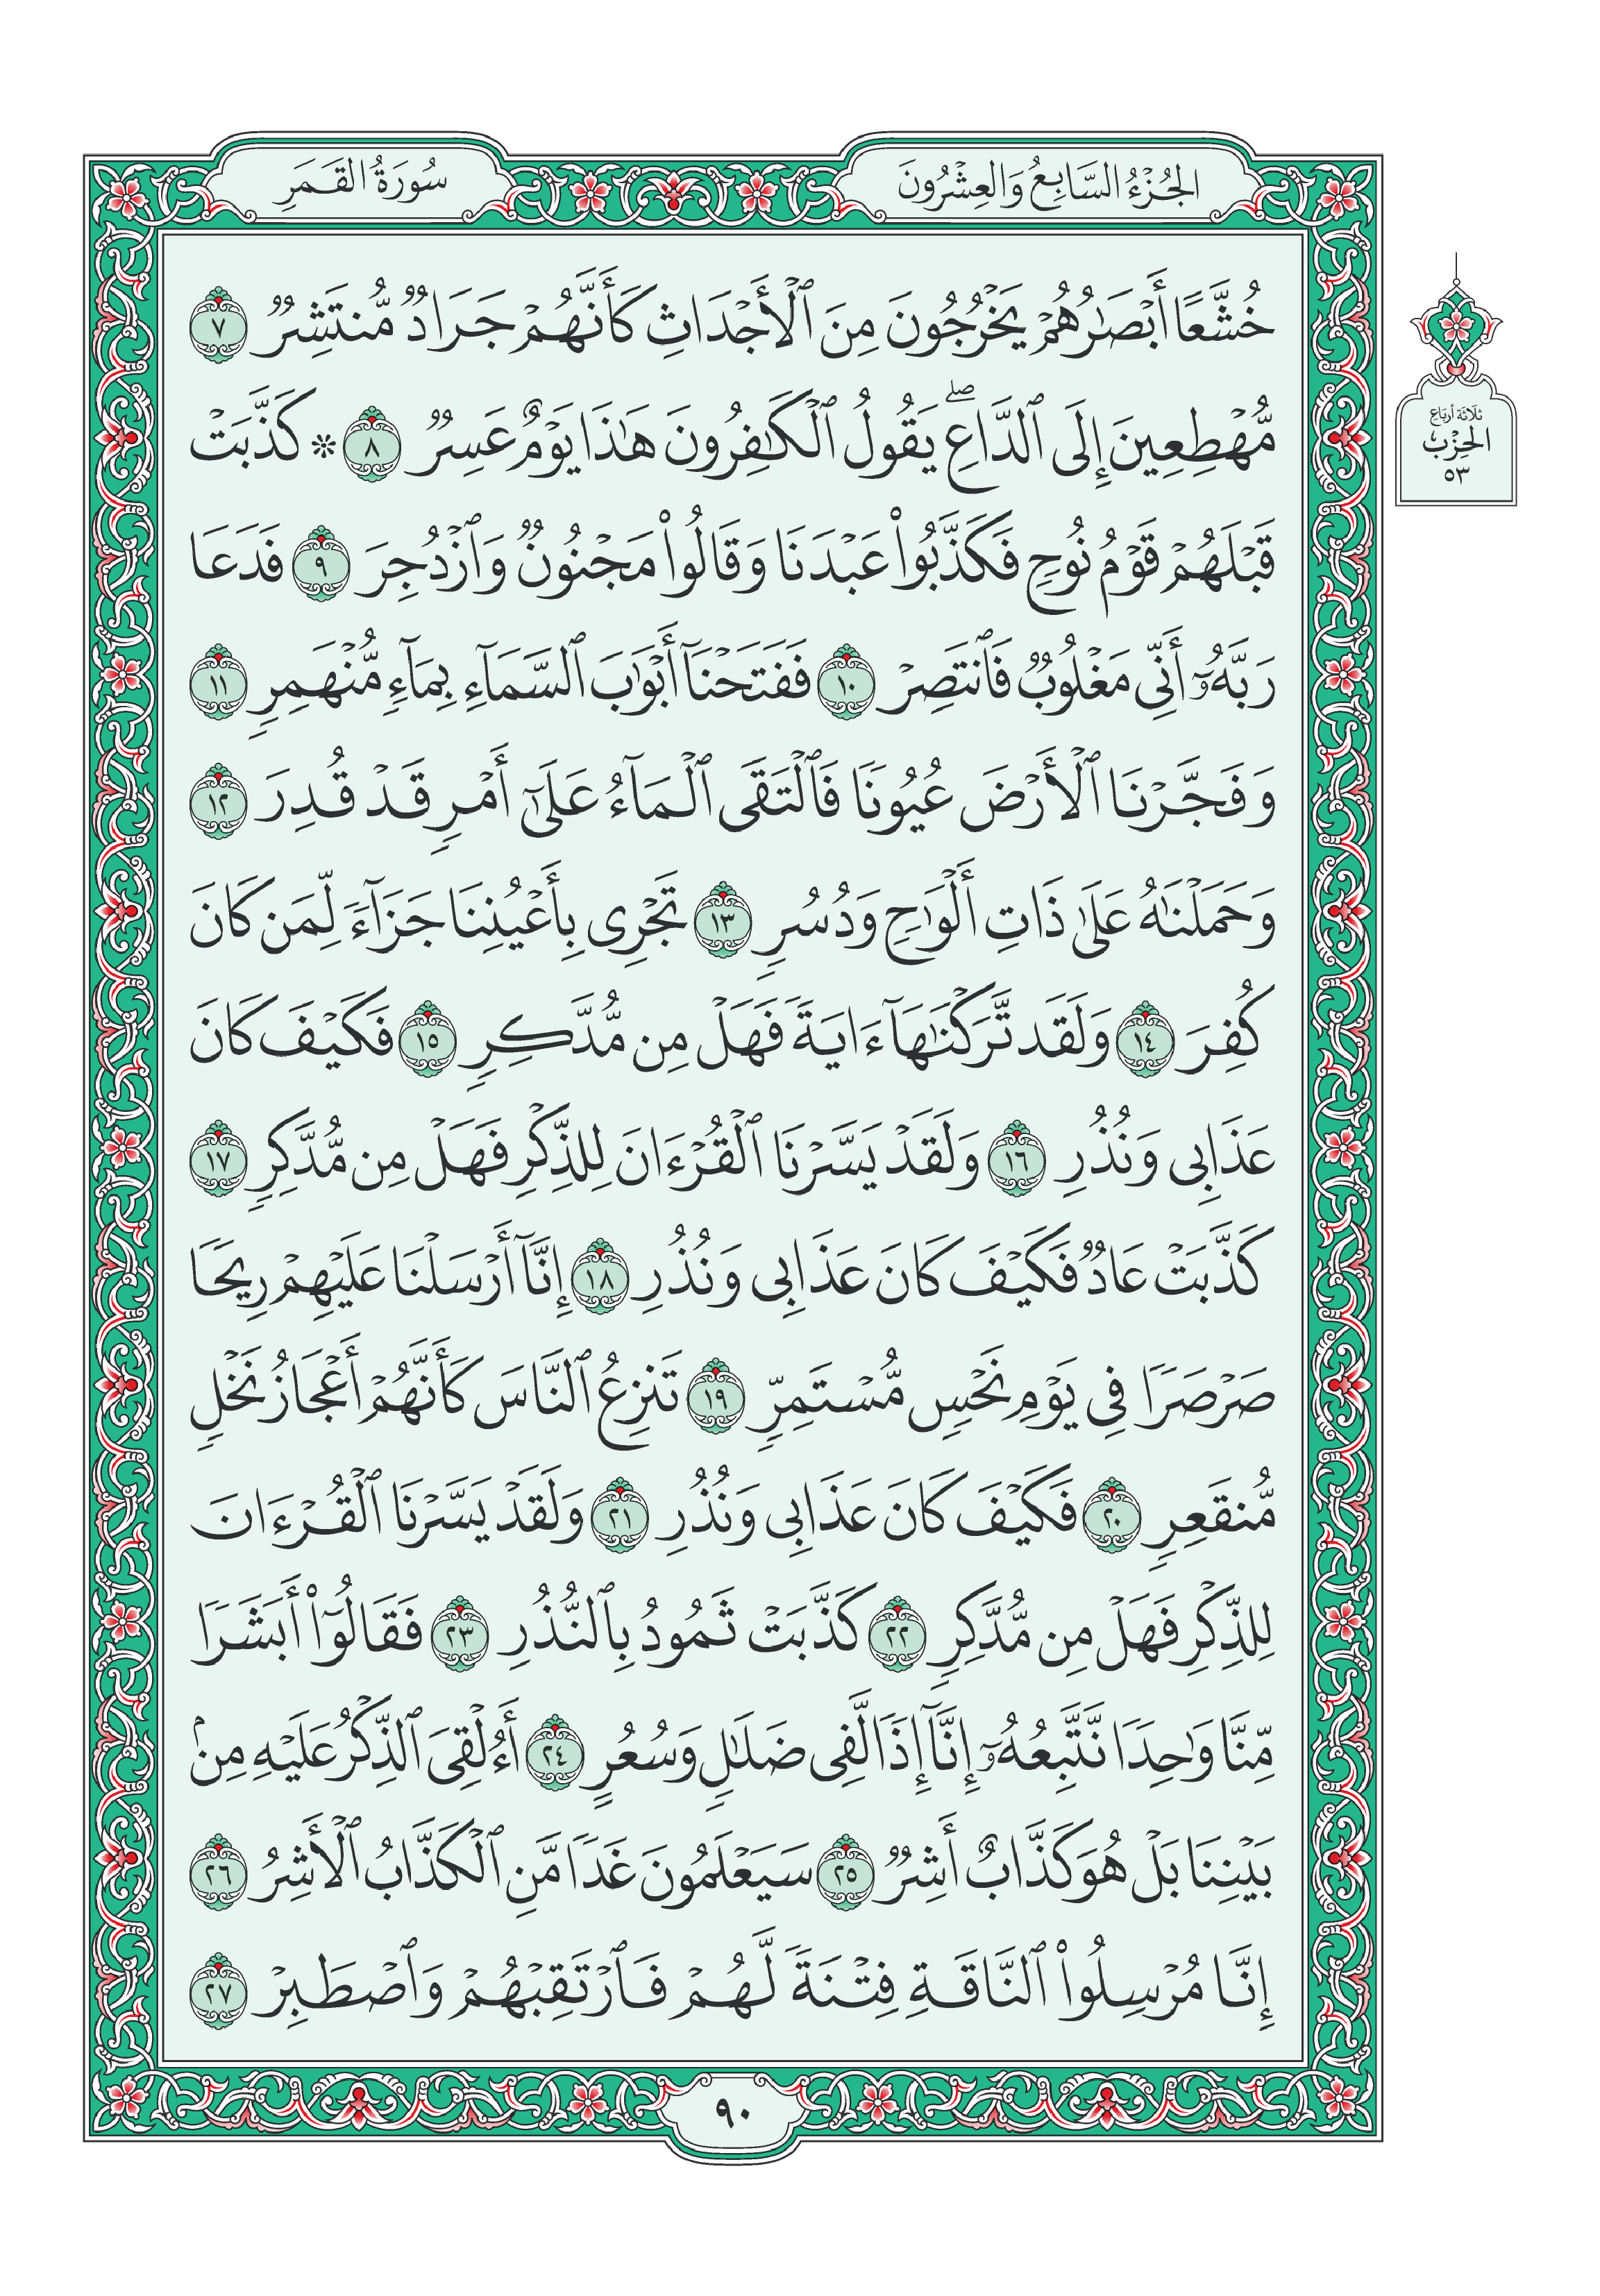 الجُزْءُ السَّابِعُ وَالعِشْرُونَ
سُورَةُ القَمَرِ
خُشَّعًا أَبْصَـٰرُهُمْ يَخْرُجُونَ مِنَ ٱلْأَجْدَاثِ كَأَنَّهُمْ جَرَادٌ مُّنتَشِرٌ ٧
مُّهْطِعِينَ إِلَى ٱلدَّاعِ ۖ يَقُولُ ٱلْكَـٰفِرُونَ هَـٰذَا يَوْمٌ عَسِرٌ ٨ ۞ كَذَّبَتْ
قَبْلَهُمْ قَوْمُ نُوحٍ فَكَذَّبُوا۟ عَبْدَنَا وَقَالُوا۟ مَجْنُونٌ وَٱزْدُجِرَ ٩ فَدَعَا
رَبَّهُۥٓ أَنِّى مَغْلُوبٌ فَٱنتَصِرْ ١٠ فَفَتَحْنَآ أَبْوَٰبَ ٱلسَّمَآءِ بِمَآءٍ مُّنْهَمِرٍ ١١
وَفَجَّرْنَا ٱلْأَرْضَ عُيُونًا فَٱلْتَقَى ٱلْمَآءُ عَلَىٰٓ أَمْرٍ قَدْ قُدِرَ ١٢
وَحَمَلْنَـٰهُ عَلَىٰ ذَاتِ أَلْوَٰحٍ وَدُسُرٍ ١٣ تَجْرِى بِأَعْيُنِنَا جَزَآءً لِّمَن كَانَ
كُفِرَ ١٤ وَلَقَد تَّرَكْنَـٰهَآ ءَايَةً فَهَلْ مِن مُّدَّكِرٍ ١٥ فَكَيْفَ كَانَ
عَذَابِى وَنُذُرِ ١٦ وَلَقَدْ يَسَّرْنَا ٱلْقُرْءَانَ لِلذِّكْرِ فَهَلْ مِن مُّدَّكِرٍ ١٧
كَذَّبَتْ عَادٌ فَكَيْفَ كَانَ عَذَابِى وَنُذُرِ ١٨ إِنَّآ أَرْسَلْنَا عَلَيْهِمْ رِيحًا
صَرْصَرًا فِى يَوْمِ نَحْسٍ مُّسْتَمِرٍّ ١٩ تَنزِعُ ٱلنَّاسَ كَأَنَّهُمْ أَعْجَازُ نَخْلٍ
مُّنقَعِرٍ ٢٠ فَكَيْفَ كَانَ عَذَابِى وَنُذُرِ ٢١ وَلَقَدْ يَسَّرْنَا ٱلْقُرْءَانَ
لِلذِّكْرِ فَهَلْ مِن مُّدَّكِرٍ ٢٢ كَذَّبَتْ ثَمُودُ بِٱلنُّذُرِ ٢٣ فَقَالُوٓا۟ أَبَشَرًا
مِّنَّا وَٰحِدًا نَّتَّبِعُهُۥٓ إِنَّآ إِذًا لَّفِى ضَلَـٰلٍ وَسُعُرٍ ٢٤ أَءُلْقِىَ ٱلذِّكْرُ عَلَيْهِ مِنۢ
بَيْنِنَا بَلْ هُوَ كَذَّابٌ أَشِرٌ ٢٥ سَيَعْلَمُونَ غَدًا مَّنِ ٱلْكَذَّابُ ٱلْأَشِرُ ٢٦
إِنَّا مُرْسِلُوا۟ ٱلنَّاقَةِ فِتْنَةً لَّهُمْ فَٱرْتَقِبْهُمْ وَٱصْطَبِرْ ٢٧
ثلَاثَة أربَاع
الحِزْب
٥٣
٩٠